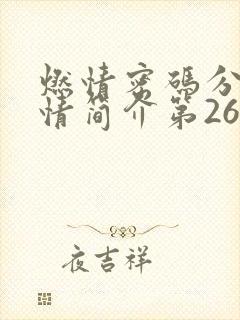 燃情密码分
情简介第26
夜吉祥